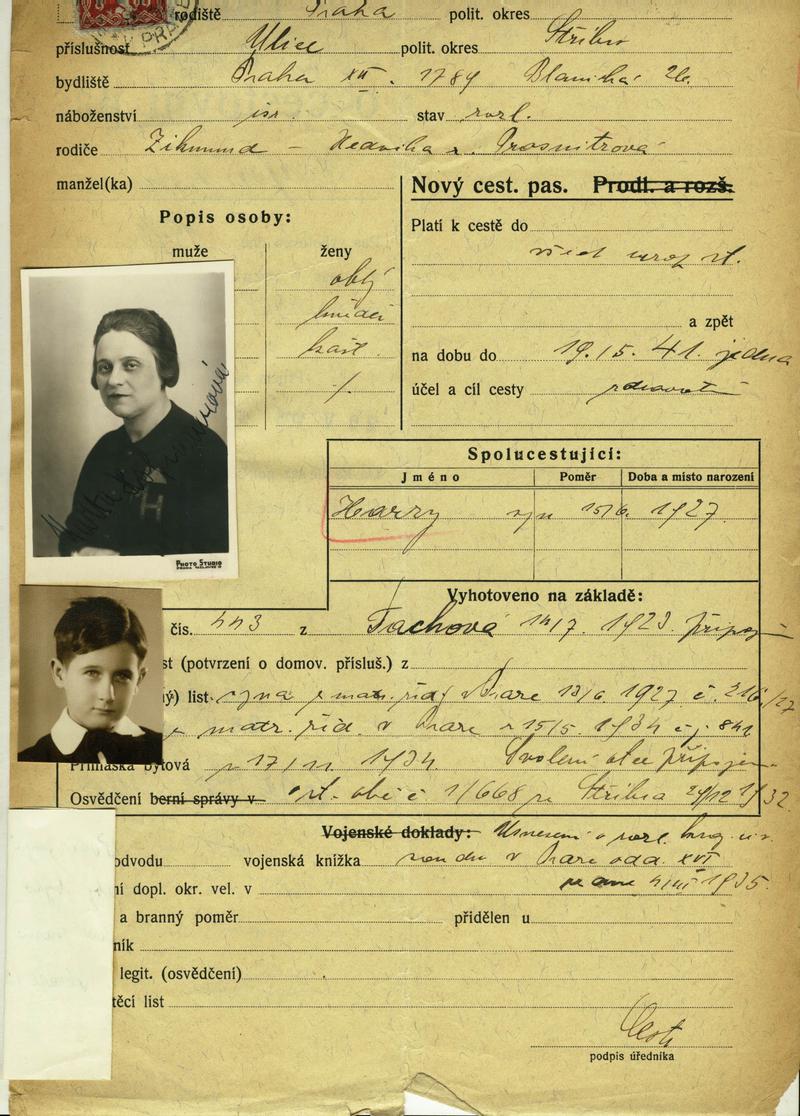 rodiště Praha polit. okres
příslušnost Ulice polit. okres Stříbro
bydliště Praha XII. 1789 Blanická 26.
náboženství isr. stav rozl.
rodiče Zikmund – Hedvika r. Prosnitzová
manžel(ka)
Nový cest. pas. Prodl. a rozš.
Popis osoby:
muže ženy
oblý
hnědé
kašt.
/.
Platí k cestě do
všech evrop. st.
a zpět
na dobu do 19./5. 41. jedna
účel a cíl cesty zdravotní
PHOTO STUDIO
Spolucestující:
Jméno Poměr Doba a místo narození
Harry syn 15/6. 1927
Vyhotoveno na základě:
čís. 443 z Tachová 14/7. 1923 připoj
st (potvrzení o domov. přísluš.) z
ý) list syna 13/6. 1927 č. 216/27
matr. řid. v Praze z 15/5. 1934 čj. 841
Přihláška bytová z 17/11. 1934. Svolení otce připojen
Osvědčení berní správy v st. obč. č. 1/668 ze Stříbra 24/12 1932
Vojenské doklady: Usnesení o rozl. kraj.
odvodu vojenská knížka soudu v Praze odd. XVI
ní dopl. okr. vel. v ze dne 4/III 1935.
a branný poměr přidělen u
ník
legit. (osvědčení)
těcí list
podpis úředníka